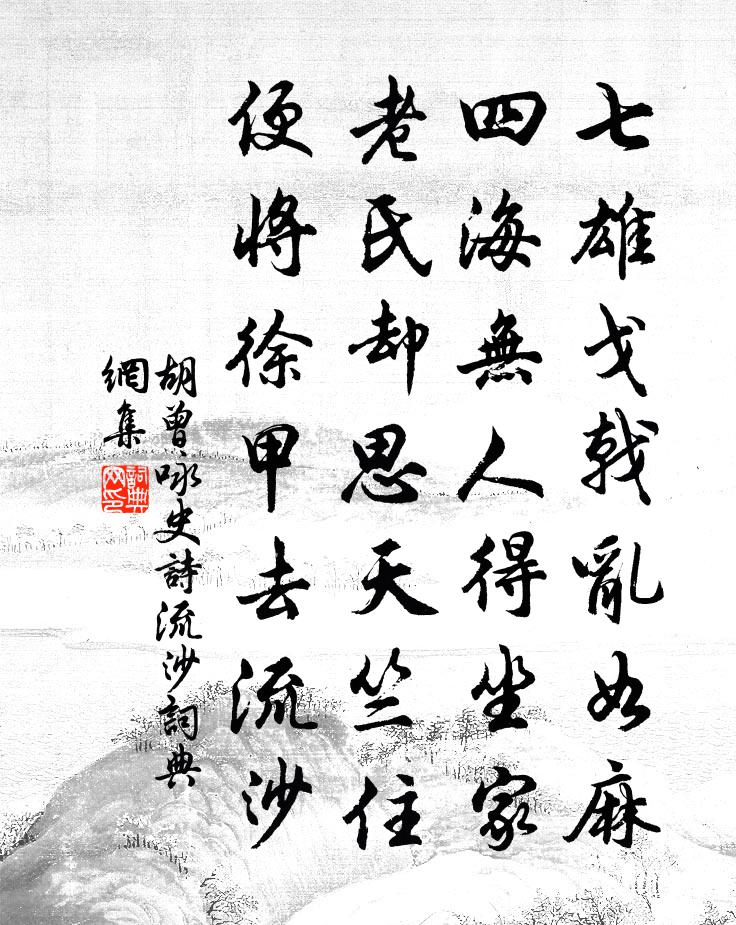 七雄戈戟亂如麻
四海無人得坐家
老氏却思天竺住
便將徐甲去流沙
胡曾詠史詩流沙詞典
網集
詞典
網印